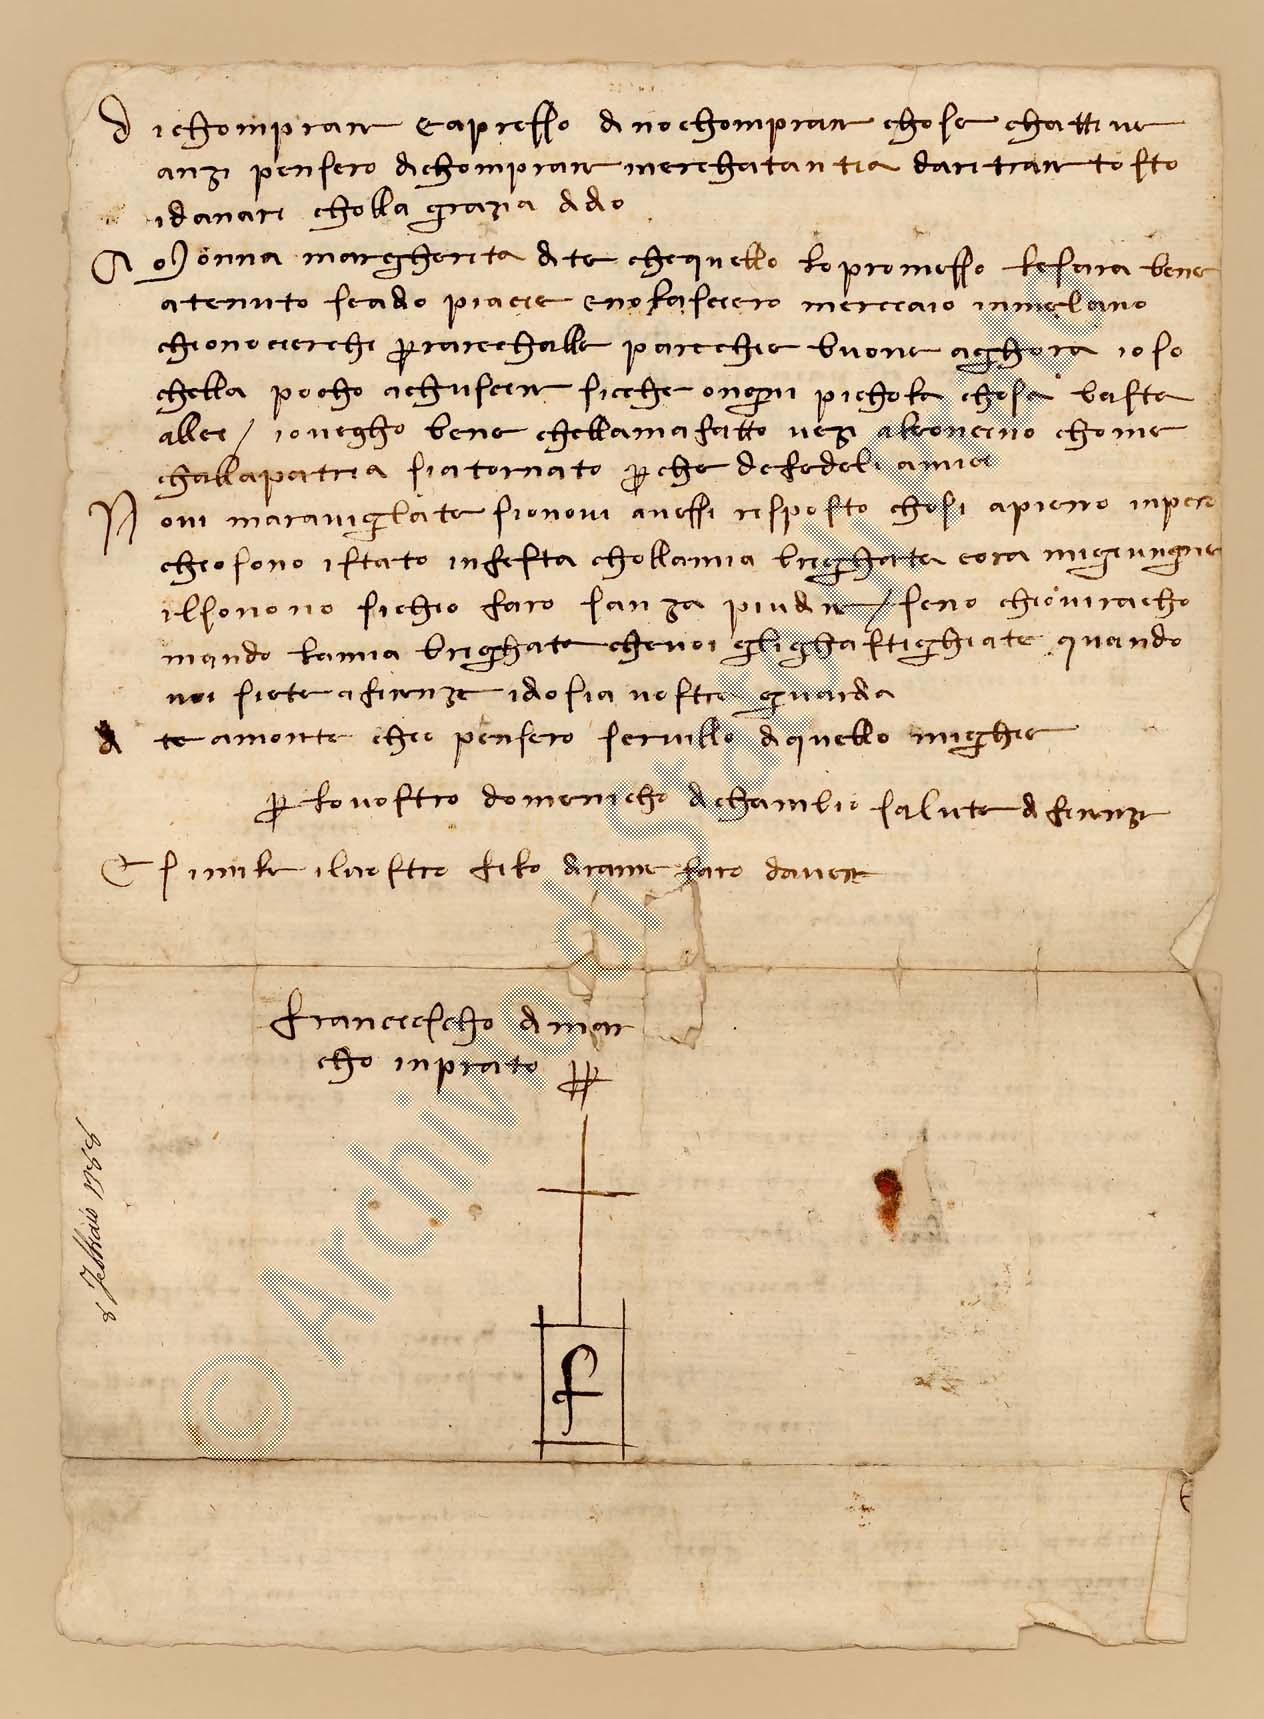 di chomprare e apresso di no chomprare chose chattive
anzi pensero di chomprare merchatantia da ritrare tosto
i danari cholla grazia di dio
A monna margherita dite che quello le promesso le sara bene
atenuto se a dio piacie e no lasciero merciaio in melano
chio no cierchi per arechalle parechie buone aghora io so
chella pocho a chuscire sicche ongni pichola chosa baste
allei / io vegho bene chella ma fatto vezi
challa patria sia tornato perche de fedeli amici
Non vi maravigliate sio no vi avessi risposto chosi a pieno inpero
chio sono istato in festa cholla mia brighata e ora mi giungne
il sono no sichio faro sanza piu dire / seno chio vi racho
mando la mia brighata che voi gli ghastighiate quando
voi siete a firenze idio sia vostra guardia
dite a monte chio pensero servillo di quello mi chiede
per lo vostro domenicho di chambio salute di firenze
E simile il vostro filo di rame faro d avere
Franciescho di mar
cho in prato
8 Febbraio 1388
f
© Archivio di Stato di Prato